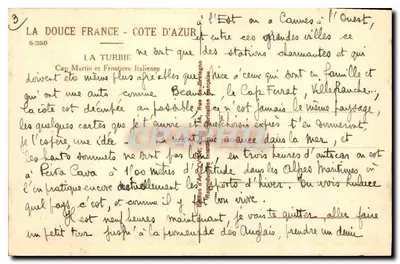 3
LA DOUCE FRANCE - CÔTE D'AZUR
5/250
LA TURBIE
Cap Martin et Frontière Italienne
à l'Est on a Cannes à l'Ouest,
et entre ces grandes villes ce
ne sont que des stations charmantes et qui
doivent être même plus agréables que Nice à ceux qui sont en famille et
qui ont une auto comme Beaulieu, le Cap Ferrat, Villefranche...
La côte est découpée au possible, ce n'est jamais le même paysage
les quelques cartes que je t'envoie et que choisis exprès t'en donneront
je l'espère, une idée montagne avance dans la mer, et
les hauts sommets ne sont pas loin en trois heures d'autocar on est
à Peïra Cava à mètres d'altitude dans les Alpes Maritimes, où
l'on pratique encore actuellement les sports d'hiver. Tu vois
quel pays c'est, et comme il y fait bon vivre.
Il est neuf heures maintenant, je vais te quitter, aller faire
un petit tour jusqu'à la promenade des Anglais, prendre un demi